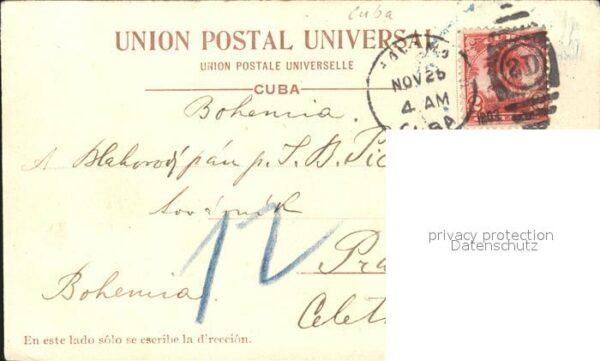 Cuba
UNION POSTAL UNIVERSAL
UNION POSTALE UNIVERSELLE
CUBA
NOV 26
4 AM
CUBA
2D
Bohemia
A Blahorodý pán p. J. B.
továrník
12
Pra
Bohemia.
Celet
En este lado sólo se escribe la dirección.
privacy protection
Datenschutz